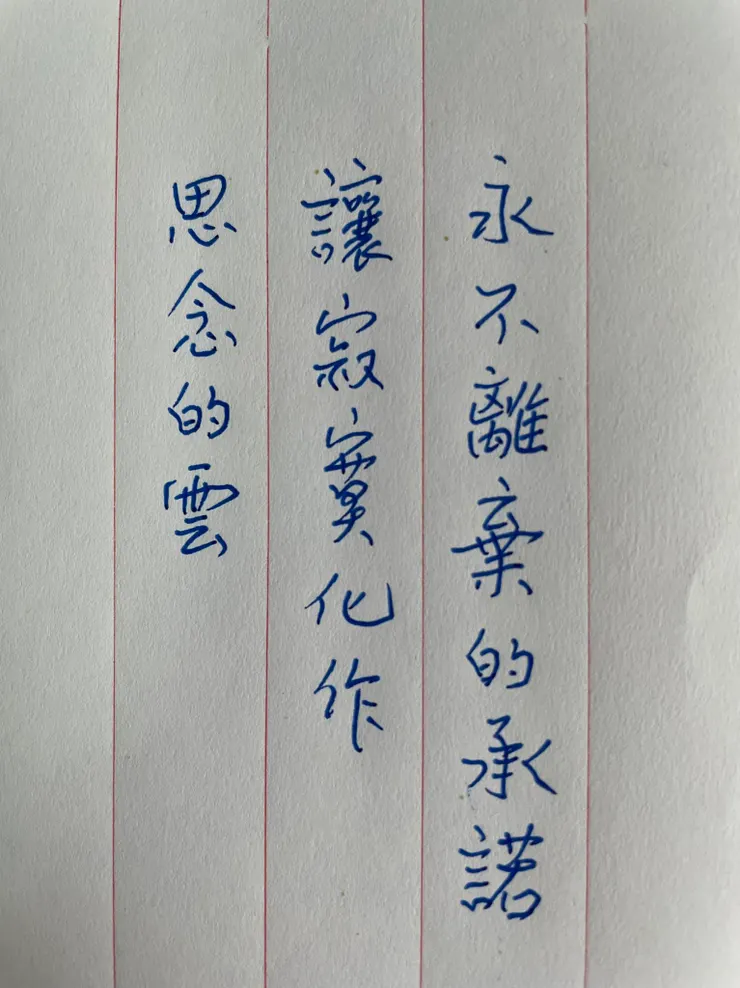 永不離棄的承諾
讓寂寞化作
思念的雲